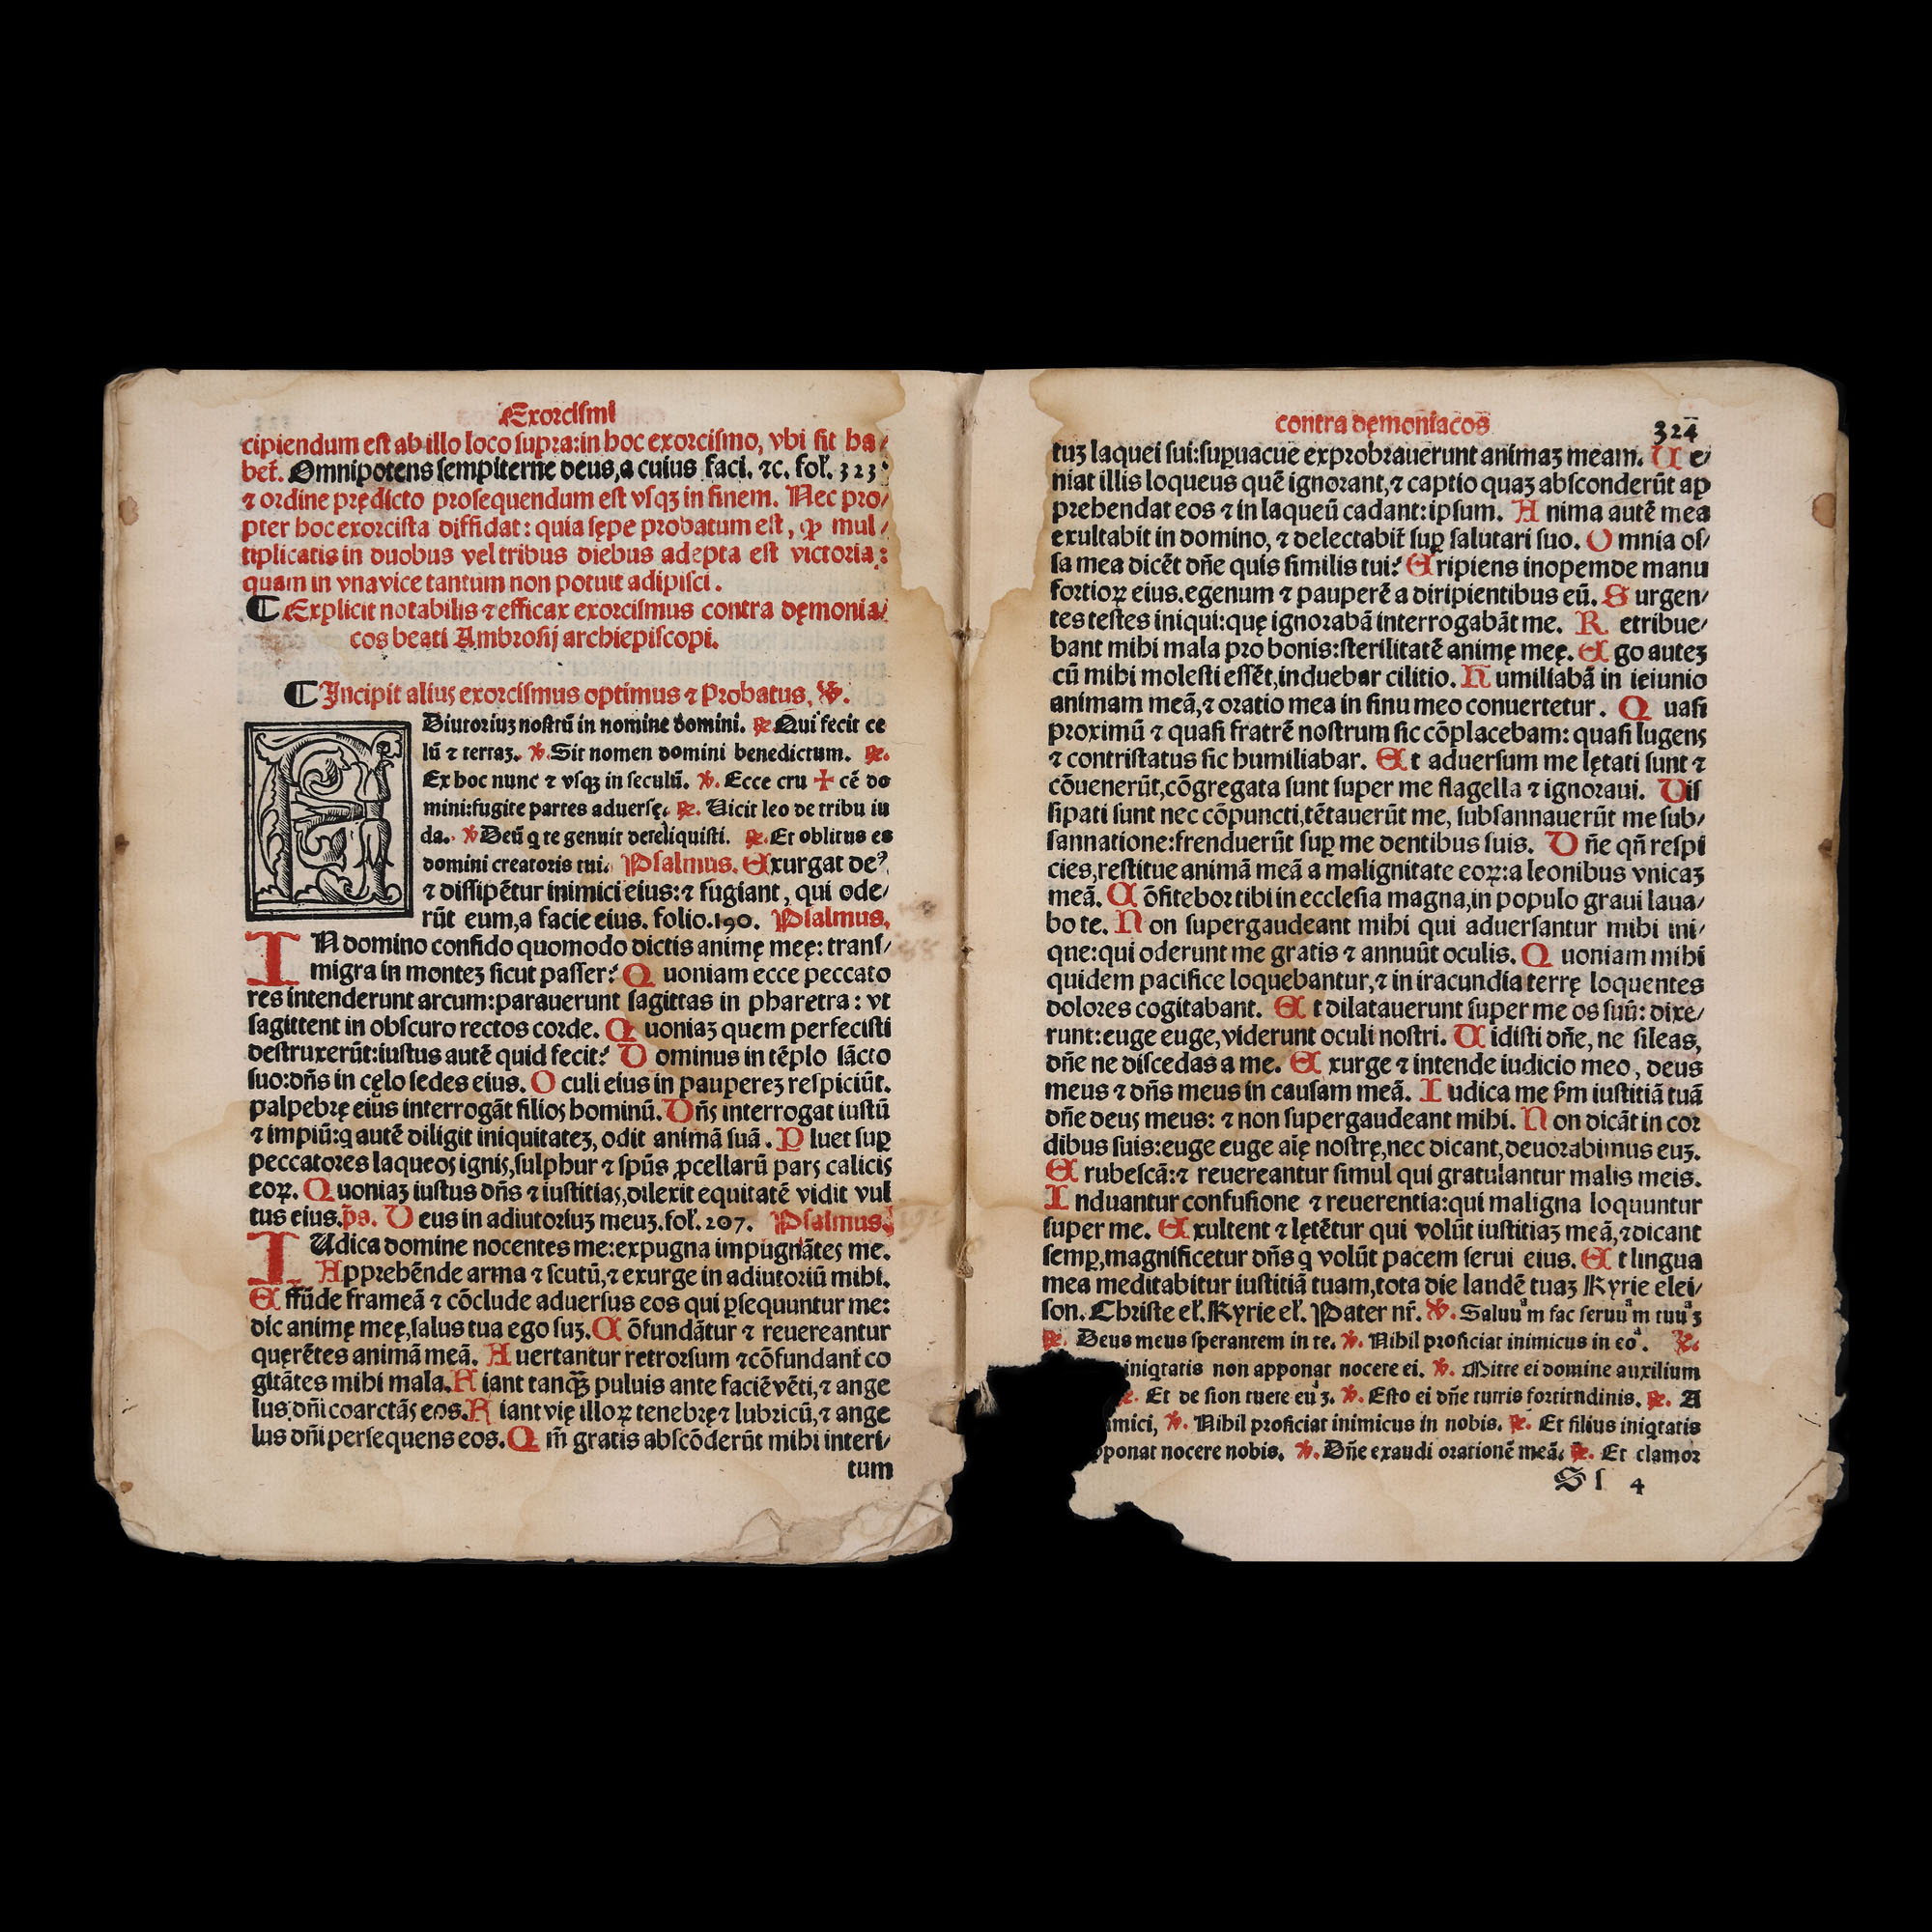 Exorcismi
cipiendum est ab illo loco supra:in hoc exorcismo, vbi sic ha/
bet̃. Omnipotens sempiterne deus,a cuius faci. ⁊c. fol̃. 323.
⁊ ordine prędicto prosequendum est vsqꝫ in finem. Nec pro/
pter hoc exorcista diffidat: quia sępe probatum est, ꝙ mul/
tiplicatis in duobus vel tribus diebus adepta est victoria:
quam in vna vice tantum non potuit adipisci.
¶ Explicit notabilis ⁊ efficax exorcismus contra dęmonia/
cos beati Ambrosij archiepiscopi.
¶ Incipit alius exorcismus optimus ⁊ Probatus. ℣.
Diutoriuꝫ nostrũ in nomine domini. ℟. Qui fecit ce
lũ ⁊ terraꝫ. ℣. Sit nomen domini benedictum. ℟.
Ex hoc nunc ⁊ vsqꝫ in seculũ. ℣. Ecce cru ✠ cẽ do
mini:fugite partes aduersę. ℟. Uicit leo de tribu iu
da. ℣. Deũ q te genuit dereliquisti. ℟. Et oblitus es
domini creatoris tui. Psalmus. Exurgat deꝰ
⁊ dissipẽtur inimici eius:⁊ fugiant, qui ode/
rũt eum,a facie eius. folio.190. Psalmus.
IN domino confido quomodo dictis animę meę: trans/
migra in monteꝫ sicut passer? Q uoniam ecce peccato
res intenderunt arcum:parauerunt sagittas in pharetra: vt
sagittent in obscuro rectos corde. Q uoniaꝫ quem perfecisti
destruxerũt:iustus autẽ quid fecit? D ominus in tẽplo sãcto
suo:dñs in cęlo sedes eius. O culi eius in paupereꝫ respiciũt.
palpebrę eius interrogãt filios hominũ. D ñs interrogat iustũ
⁊ impiũ:q autẽ diligit iniquitateꝫ, odit animã suã. P luet suꝑ
peccatores laqueos ignis,sulphur ⁊ spũs ꝓcellarũ pars calicis
eoꝝ. Q uoniaꝫ iustus dñs ⁊ iustitias,dilexit equitatẽ vidit vul
tus eius.ps. D eus in adiutoriuꝫ meuꝫ.fol̃.207. Psalmus.
IUdica domine nocentes me:expugna impugnãtes me.
Apprehẽnde arma ⁊ scutũ,⁊ exurge in adiutoriũ mihi.
E ffũde frameã ⁊ cõclude aduersus eos qui ꝑsequuntur me:
dic animę meę,salus tua ego suꝫ. C õfundãtur ⁊ reuereantur
quęrẽtes animã meã. A uertantur retrorsum ⁊ cõfundant̃ co
gitãtes mihi mala. F iant tanqꝫ puluis ante faciẽ vẽti,⁊ ange
lus dñi coarctãs eos. F iant vię illoꝝ tenebrę ⁊ lubricũ,⁊ ange
lus dñi persequens eos. Q m̃ gratis abscõderũt mihi interi/
tum
contra dęmoniacos 324
tuꝫ laquei sui:suꝑuacue exprobrauerunt animaꝫ meam. U e/
niat illis loqueus quẽ ignorant,⁊ captio quaꝫ absconderũt ap
prehendat eos ⁊ in laqueũ cadant:ipsum. A nima autẽ mea
exultabit in domino, ⁊ delectabit̃ suꝑ salutari suo. O mnia os/
sa mea dicẽt dñe quis similis tui? E ripiens inopem de manu
fortioꝝ eius.egenum ⁊ pauperẽ a diripientibus eũ. S urgen/
tes testes iniqui:quę ignorabã interrogabãt me. R etribue/
bant mihi mala pro bonis:sterilitatẽ animę meę. E go auteꝫ
cũ mihi molesti essẽt,induebar cilitio. H umiliabã in ieiunio
animam meã,⁊ oratio mea in sinu meo conuertetur. Q uasi
proximũ ⁊ quasi fratrẽ nostrum sic cõplacebam: quasi lugens
⁊ contristatus sic humiliabar. E t aduersum me lętati sunt ⁊
cõuenerũt,cõgregata sunt super me flagella ⁊ ignoraui. Dis
sipati sunt nec cõpuncti,tẽtauerũt me, subsannauerũt me sub/
sannatione:frenduerũt suꝑ me dentibus suis. D ñe qñ respi
cies,restitue animã meã a malignitate eoꝝ:a leonibus vnicaꝫ
meã. C õfitebor tibi in ecclesia magna,in populo graui lauа/
bo te. N on supergaudeant mihi qui aduersantur mihi ini/
que:qui oderunt me gratis ⁊ annuũt oculis. Q uoniam mihi
quidem pacifice loquebantur,⁊ in iracundia terrę loquentes
dolores cogitabant. E t dilatauerunt super me os suũ: dixe/
runt:euge euge,viderunt oculi nostri. U idisti dñe, ne sileas,
dñe ne discedas a me. E xurge ⁊ intende iudicio meo, deus
meus ⁊ dñs meus in causam meã. I udica me sm̃ iustitiã tuã
dñe deus meus: ⁊ non supergaudeant mihi. N on dicãt in cor
dibus suis:euge euge aĩę nostrę,nec dicant,deuorabimus euꝫ.
E rubescã:⁊ reuereantur simul qui gratulantur malis meis.
I nduantur confusione ⁊ reuerentia:qui maligna loquuntur
super me. E xultent ⁊ lętẽtur qui volũt iustitiaꝫ meã,⁊ dicant
semꝑ,magnificetur dñs q volũt pacem serui eius. E t lingua
mea meditabitur iustitiã tuam,tota die landẽ tuaꝫ Kyrie elei/
son. Christe el̃. Kyrie el̃. Pater nr̃. ℣. Saluũ m fac seruũ m tuũ ꝫ
℟. Deus meus sperantem in te. ℣. Nihil proficiat inimicus in eo. ℟.
iniqtatis non apponat nocere ei. ℣. Mitte ei domine auxilium
℟. Et de sion tuere euꝫ. ℣. Esto ei dñe turris fortitudinis. ℟. A
imici, ℣. Nihil proficiat inimicus in nobis. ℟. Et filius iniqtatis
pponat nocere nobis. ℣. Dñe exaudi orationẽ meã. ℟. Et clamor
Sſ 4